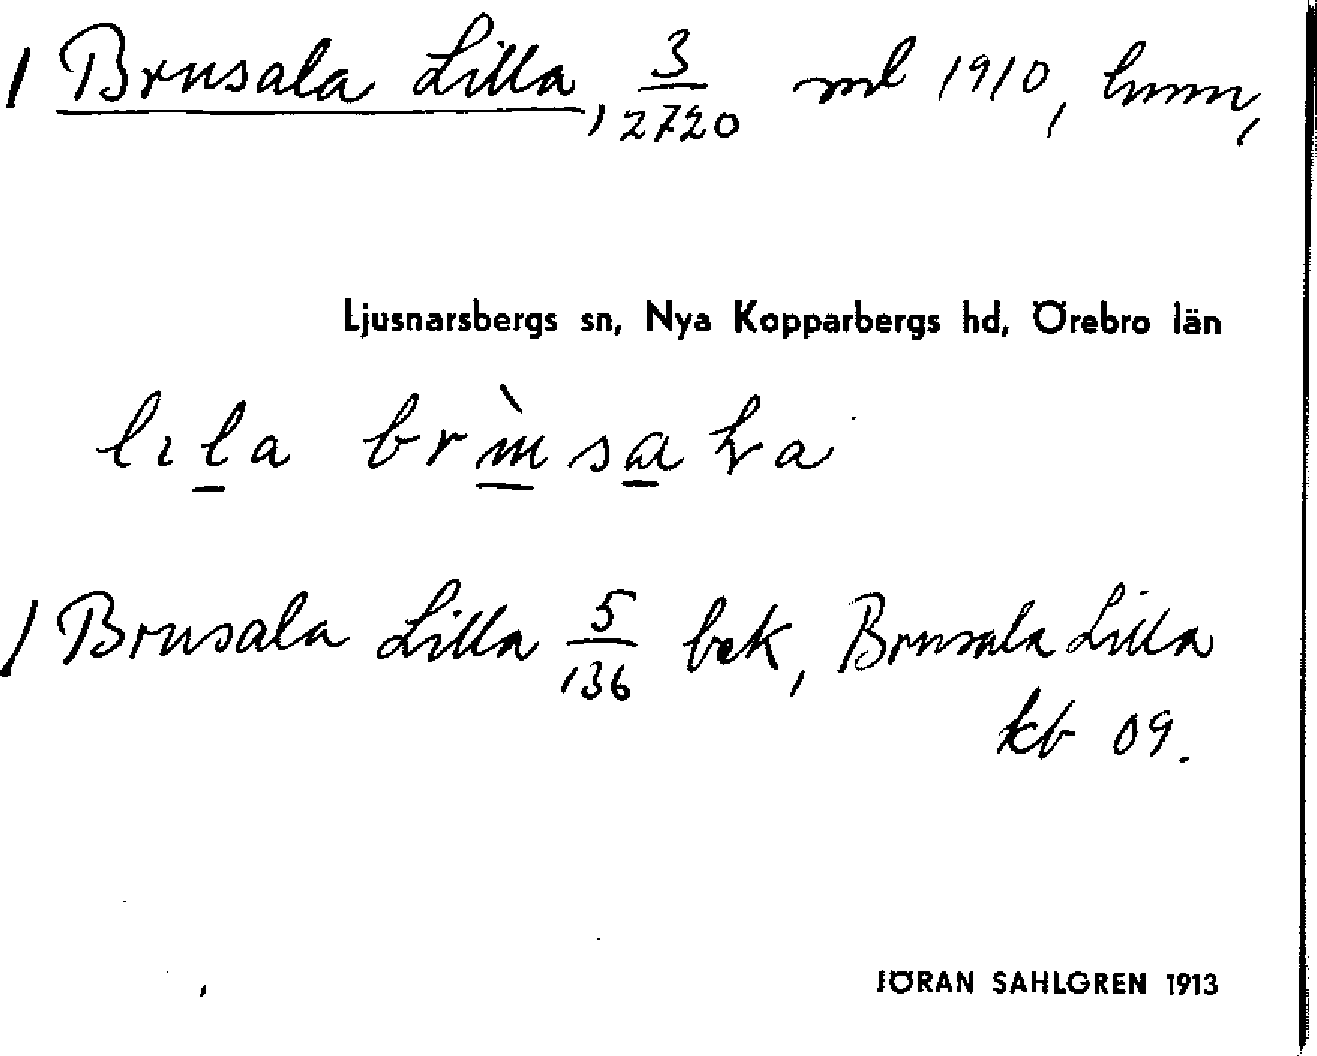 / Brusala Lilla, 3/2720 ml 1910, hmn,
Ljusnarsbergs sn, Nya Kopparbergs hd, Örebro län
lıla
/ Brusala Lilla 5/136 bek, Brusala Lilla
kb 09.
JÖRAN SAHLGREN 1913